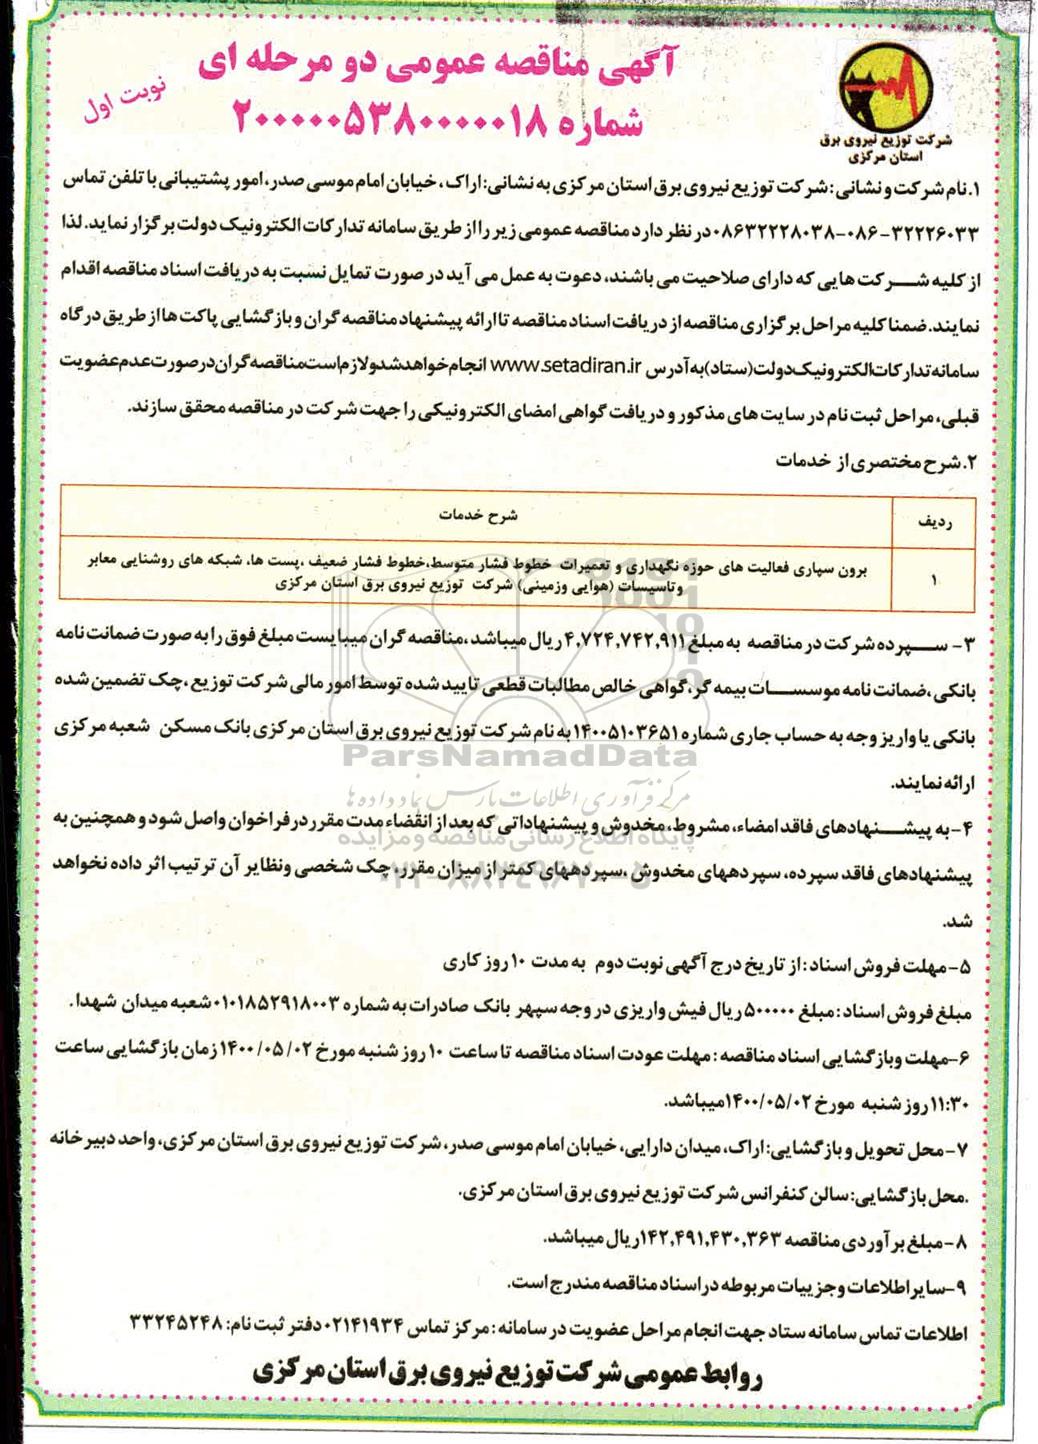 آگهی مناقصه عمومی دو مرحله ای
شماره ۲۰۰۰۰۰۵۳۸۰۰۰۰۰۱۸
نوبت اول
شرکت توزیع نیروی برق
استان مرکزی
۱.نام شرکت و نشانی: شرکت توزیع نیروی برق استان مرکزی به نشانی: اراک، خیابان امام موسی صدر، امور پشتیبانی با تلفن تماس
۳۲۲۲۶۰۳۳-۰۸۶-۰۸۶۳۲۲۲۸۰۳۸ در نظر دارد مناقصه عمومی زیر را از طریق سامانه تدارکات الکترونیک دولت برگزار نماید. لذا
از کلیه شرکت هایی که دارای صلاحیت می باشند، دعوت به عمل می آید در صورت تمایل نسبت به دریافت اسناد مناقصه اقدام
نمایند. ضمنا کلیه مراحل برگزاری مناقصه از دریافت اسناد مناقصه تا ارائه پیشنهاد مناقصه گران و بازگشایی پاکت ها از طریق درگاه
سامانه تدارکات الکترونیک دولت (ستاد) به آدرس www.setadiran.ir انجام خواهد شد و لازم است مناقصه گران در صورت عدم عضویت
قبلی، مراحل ثبت نام در سایت های مذکور و دریافت گواهی امضای الکترونیکی را جهت شرکت در مناقصه محقق سازند.
۲.شرح مختصری از خدمات
ردیف شرح خدمات
۱ برون سپاری فعالیت های حوزه نگهداری و تعمیرات خطوط فشار متوسط،خطوط فشار ضعیف ،پست ها، شبکه های روشنایی معابر
وتاسیسات (هوایی وزمینی) شرکت توزیع نیروی برق استان مرکزی
۳- سپرده شرکت در مناقصه به مبلغ ۴,۷۲۴,۷۴۲,۹۱۱ ریال میباشد ،مناقصه گران میبایست مبلغ فوق را به صورت ضمانت نامه
بانکی ،ضمانت نامه موسسات بیمه گر،گواهی خالص مطالبات قطعی تایید شده توسط امور مالی شرکت توزیع ،چک تضمین شده
بانکی یا واریز وجه به حساب جاری شماره ۱۴۰۰۵۱۰۳۶۵۱ به نام شرکت توزیع نیروی برق استان مرکزی بانک مسکن شعبه مرکزی
ارائه نمایند.
ParsNamadData
مرکز فرآوری اطلاعات پارس نماد داده ها
۴- به پیشنهادهای فاقد امضاء، مشروط، مخدوش و پیشنهاداتی که بعد از انقضاء مدت مقرر در فراخوان واصل شود و همچنین به
پایگاه اطلاع رسانی مناقصه و مزایده
پیشنهادهای فاقد سپرده، سپردههای مخدوش ،سپردههای کمتر از میزان مقرر، چک شخصی ونظایر آن ترتیب اثر داده نخواهد
۰۲۱-۸۸۳۴۹۶۷۰-۵
شد.
۵-مهلت فروش اسناد : از تاریخ درج آگهی نوبت دوم به مدت ۱۰ روز کاری
مبلغ فروش اسناد : مبلغ ۵۰۰۰۰۰ ریال فیش واریزی در وجه سپهر بانک صادرات به شماره ۰۱۰۱۸۵۲۹۱۸۰۰۳ شعبه میدان شهدا .
۶-مهلت وبازگشایی اسناد مناقصه : مهلت عودت اسناد مناقصه تا ساعت ۱۰ روز شنبه مورخ ۱۴۰۰/۰۵/۰۲ زمان بازگشایی ساعت
۱۱:۳۰ روز شنبه مورخ ۱۴۰۰/۰۵/۰۲ میباشد.
۷-محل تحویل و بازگشایی: اراک، میدان دارایی، خیابان امام موسی صدر، شرکت توزیع نیروی برق استان مرکزی، واحد دبیر خانه
.محل بازگشایی: سالن کنفرانس شرکت توزیع نیروی برق استان مرکزی.
۸-مبلغ برآوردی مناقصه ۱۴۲,۴۹۱,۴۳۰,۳۶۳ ریال میباشد.
۹-سایر اطلاعات وجزییات مربوطه در اسناد مناقصه مندرج است.
اطلاعات تماس سامانه ستاد جهت انجام مراحل عضویت در سامانه : مرکز تماس ۰۲۱۴۱۹۳۴ دفتر ثبت نام: ۳۳۲۴۵۲۴۸
روابط عمومی شرکت توزیع نیروی برق استان مرکزی